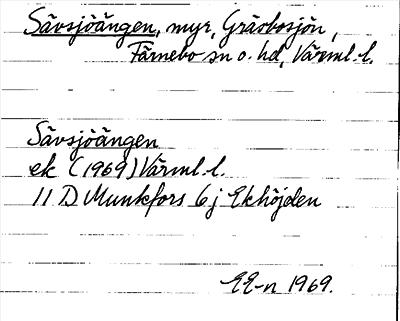 Sävsjöängen, myr, Gräsbosjön,
Färnebo sn o. hd, Värml. l.
Sävsjöängen
ek (1969) Värml. l.
11 D Munkfors 6 j Ekhöjden
EE-n 1969.